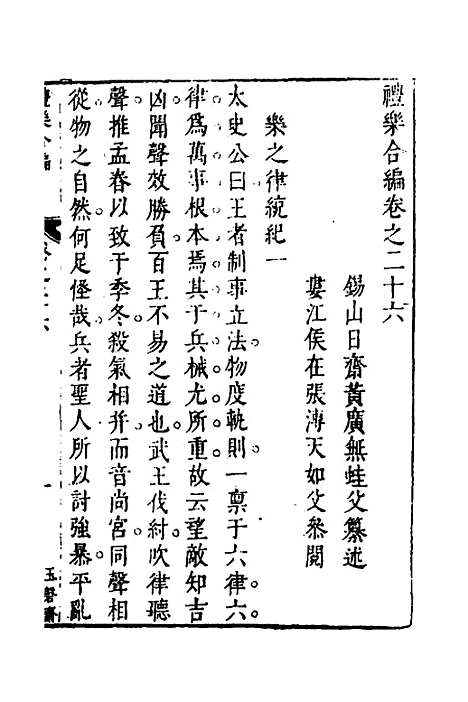 禮樂合編卷之二十六
錫山日齋黃廣無蛙父纂述
婁江侯在張溥天如父叅閱
樂之律統紀一
太史公曰王者制事立法物度軌則一禀于六律六
律爲萬事根本焉其于兵械尤所重故云望敵知吉
凶聞聲效勝負百王不易之道也武王伐紂吹律聽
聲推孟春以致于季冬殺氣相并而音尚宮同聲相
從物之自然何足怪哉兵者聖人所以討強暴平亂
禮樂合編
卷之二十六
一
玉磬齋